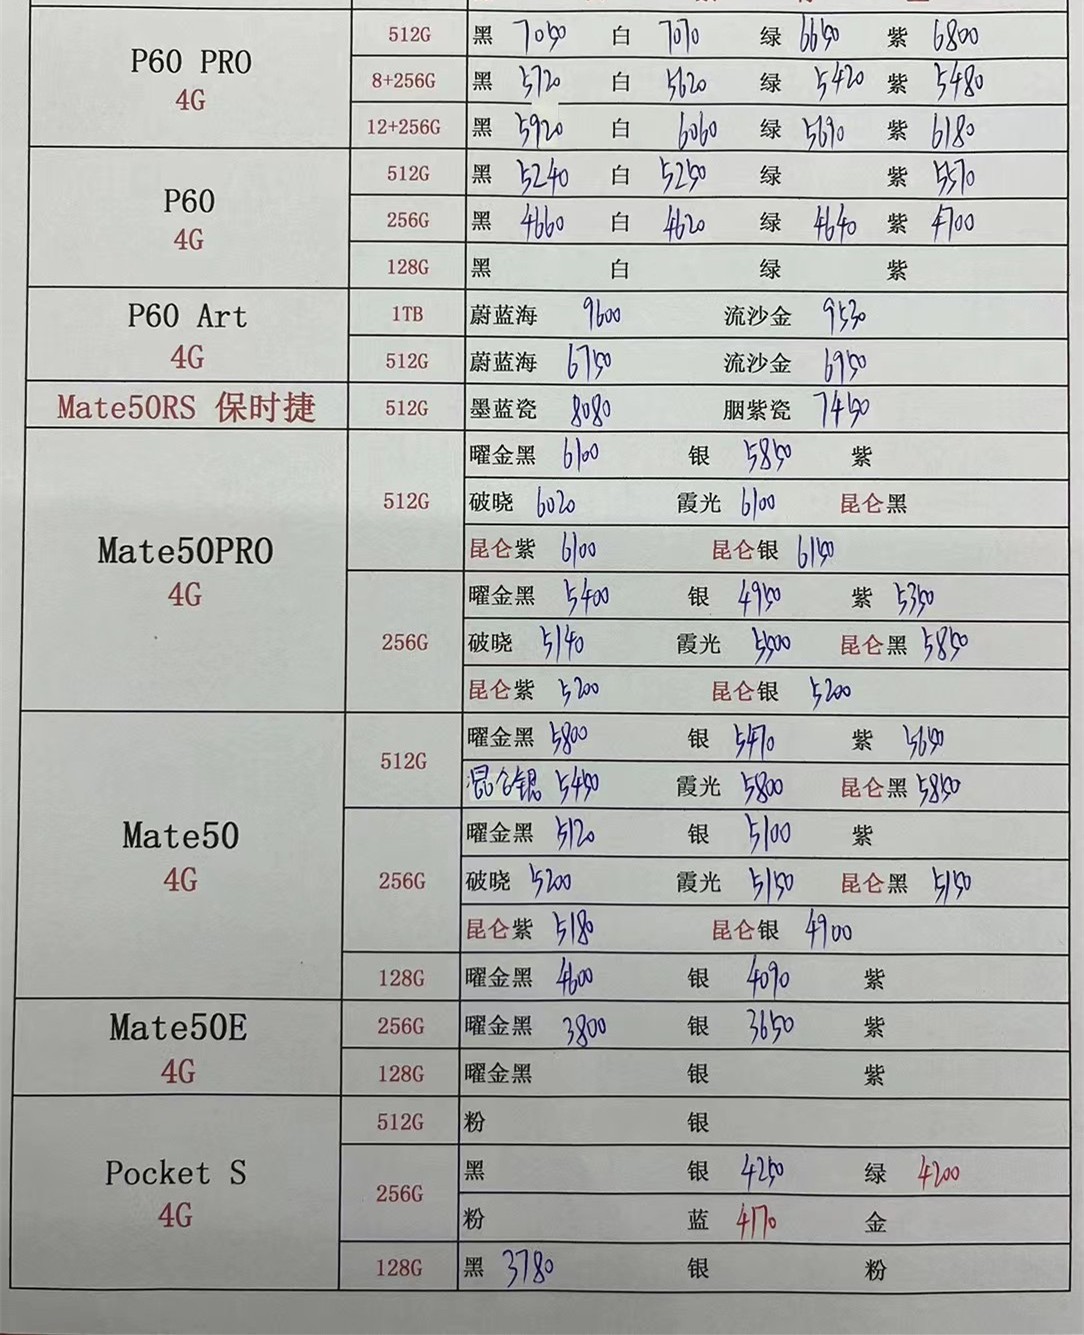 P60 PRO
4G
512G 黑 7050 白 7070 绿 6650 紫 6800
8+256G 黑 5720 白 5620 绿 5420 紫 5480
12+256G 黑 5920 白 6060 绿 5690 紫 6180
P60
4G
512G 黑 5240 白 5250 绿 紫 5570
256G 黑 4660 白 4620 绿 4640 紫 4700
128G 黑 白 绿 紫
P60 Art
4G
1TB 蔚蓝海 9600 流沙金 9530
512G 蔚蓝海 6750 流沙金 6950
Mate50RS 保时捷 512G 墨蓝瓷 8080 胭紫瓷 7450
Mate50PRO
4G
512G 曜金黑 6100 银 5850 紫
破晓 6020 霞光 6100 昆仑黑
昆仑紫 6100 昆仑银 6150
256G 曜金黑 5400 银 4950 紫 5350
破晓 5140 霞光 5500 昆仑黑 5850
昆仑紫 5200 昆仑银 5200
Mate50
4G
512G 曜金黑 5800 银 5470 紫 5650
混仑银 5450 霞光 5800 昆仑黑 5850
256G 曜金黑 5120 银 5100 紫
破晓 5200 霞光 5150 昆仑黑 5150
昆仑紫 5180 昆仑银 4900
128G 曜金黑 4600 银 4090 紫
Mate50E
4G
256G 曜金黑 3800 银 3650 紫
128G 曜金黑 银 紫
Pocket S
4G
512G 粉 银
256G 黑 银 4250 绿 4200
粉 蓝 4170 金
128G 黑 3780 银 粉